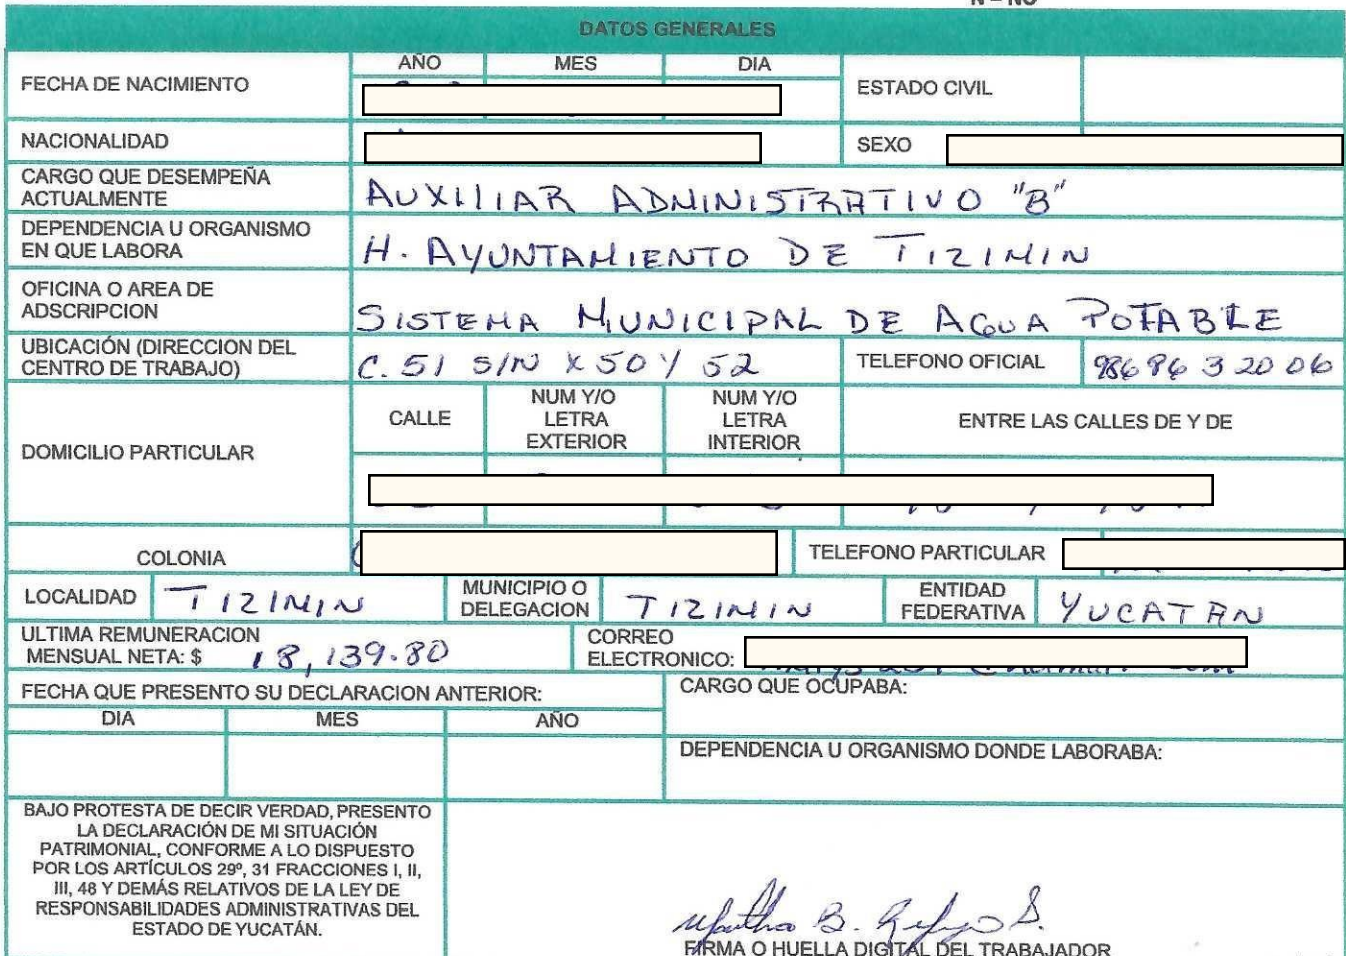 N = NO
DATOS GENERALES
FECHA DE NACIMIENTO
AÑO MES DIA
ESTADO CIVIL
NACIONALIDAD
SEXO
CARGO QUE DESEMPEÑA
ACTUALMENTE
AUXILIAR ADMINISTRATIVO "B"
DEPENDENCIA U ORGANISMO
EN QUE LABORA
H. AYUNTAMIENTO DE TIZIMIN
OFICINA O AREA DE
ADSCRIPCION
SISTEMA MUNICIPAL DE AGUA POTABLE
UBICACIÓN (DIRECCION DEL
CENTRO DE TRABAJO)
C. 51 S/N X 50 Y 52
TELEFONO OFICIAL
986 86 3 20 06
DOMICILIO PARTICULAR
CALLE
NUM Y/O
LETRA
EXTERIOR
NUM Y/O
LETRA
INTERIOR
ENTRE LAS CALLES DE Y DE
COLONIA
TELEFONO PARTICULAR
LOCALIDAD
TIZIMIN
MUNICIPIO O
DELEGACION
TIZIMIN
ENTIDAD
FEDERATIVA
YUCATAN
ULTIMA REMUNERACION
MENSUAL NETA: $ 18,139.80
CORREO
ELECTRONICO:
FECHA QUE PRESENTO SU DECLARACION ANTERIOR:
CARGO QUE OCUPABA:
DIA MES AÑO
DEPENDENCIA U ORGANISMO DONDE LABORABA:
BAJO PROTESTA DE DECIR VERDAD, PRESENTO
LA DECLARACIÓN DE MI SITUACIÓN
PATRIMONIAL, CONFORME A LO DISPUESTO
POR LOS ARTÍCULOS 29º, 31 FRACCIONES I, II,
III, 48 Y DEMÁS RELATIVOS DE LA LEY DE
RESPONSABILIDADES ADMINISTRATIVAS DEL
ESTADO DE YUCATÁN.
Martha B.
FIRMA O HUELLA DIGITAL DEL TRABAJADOR